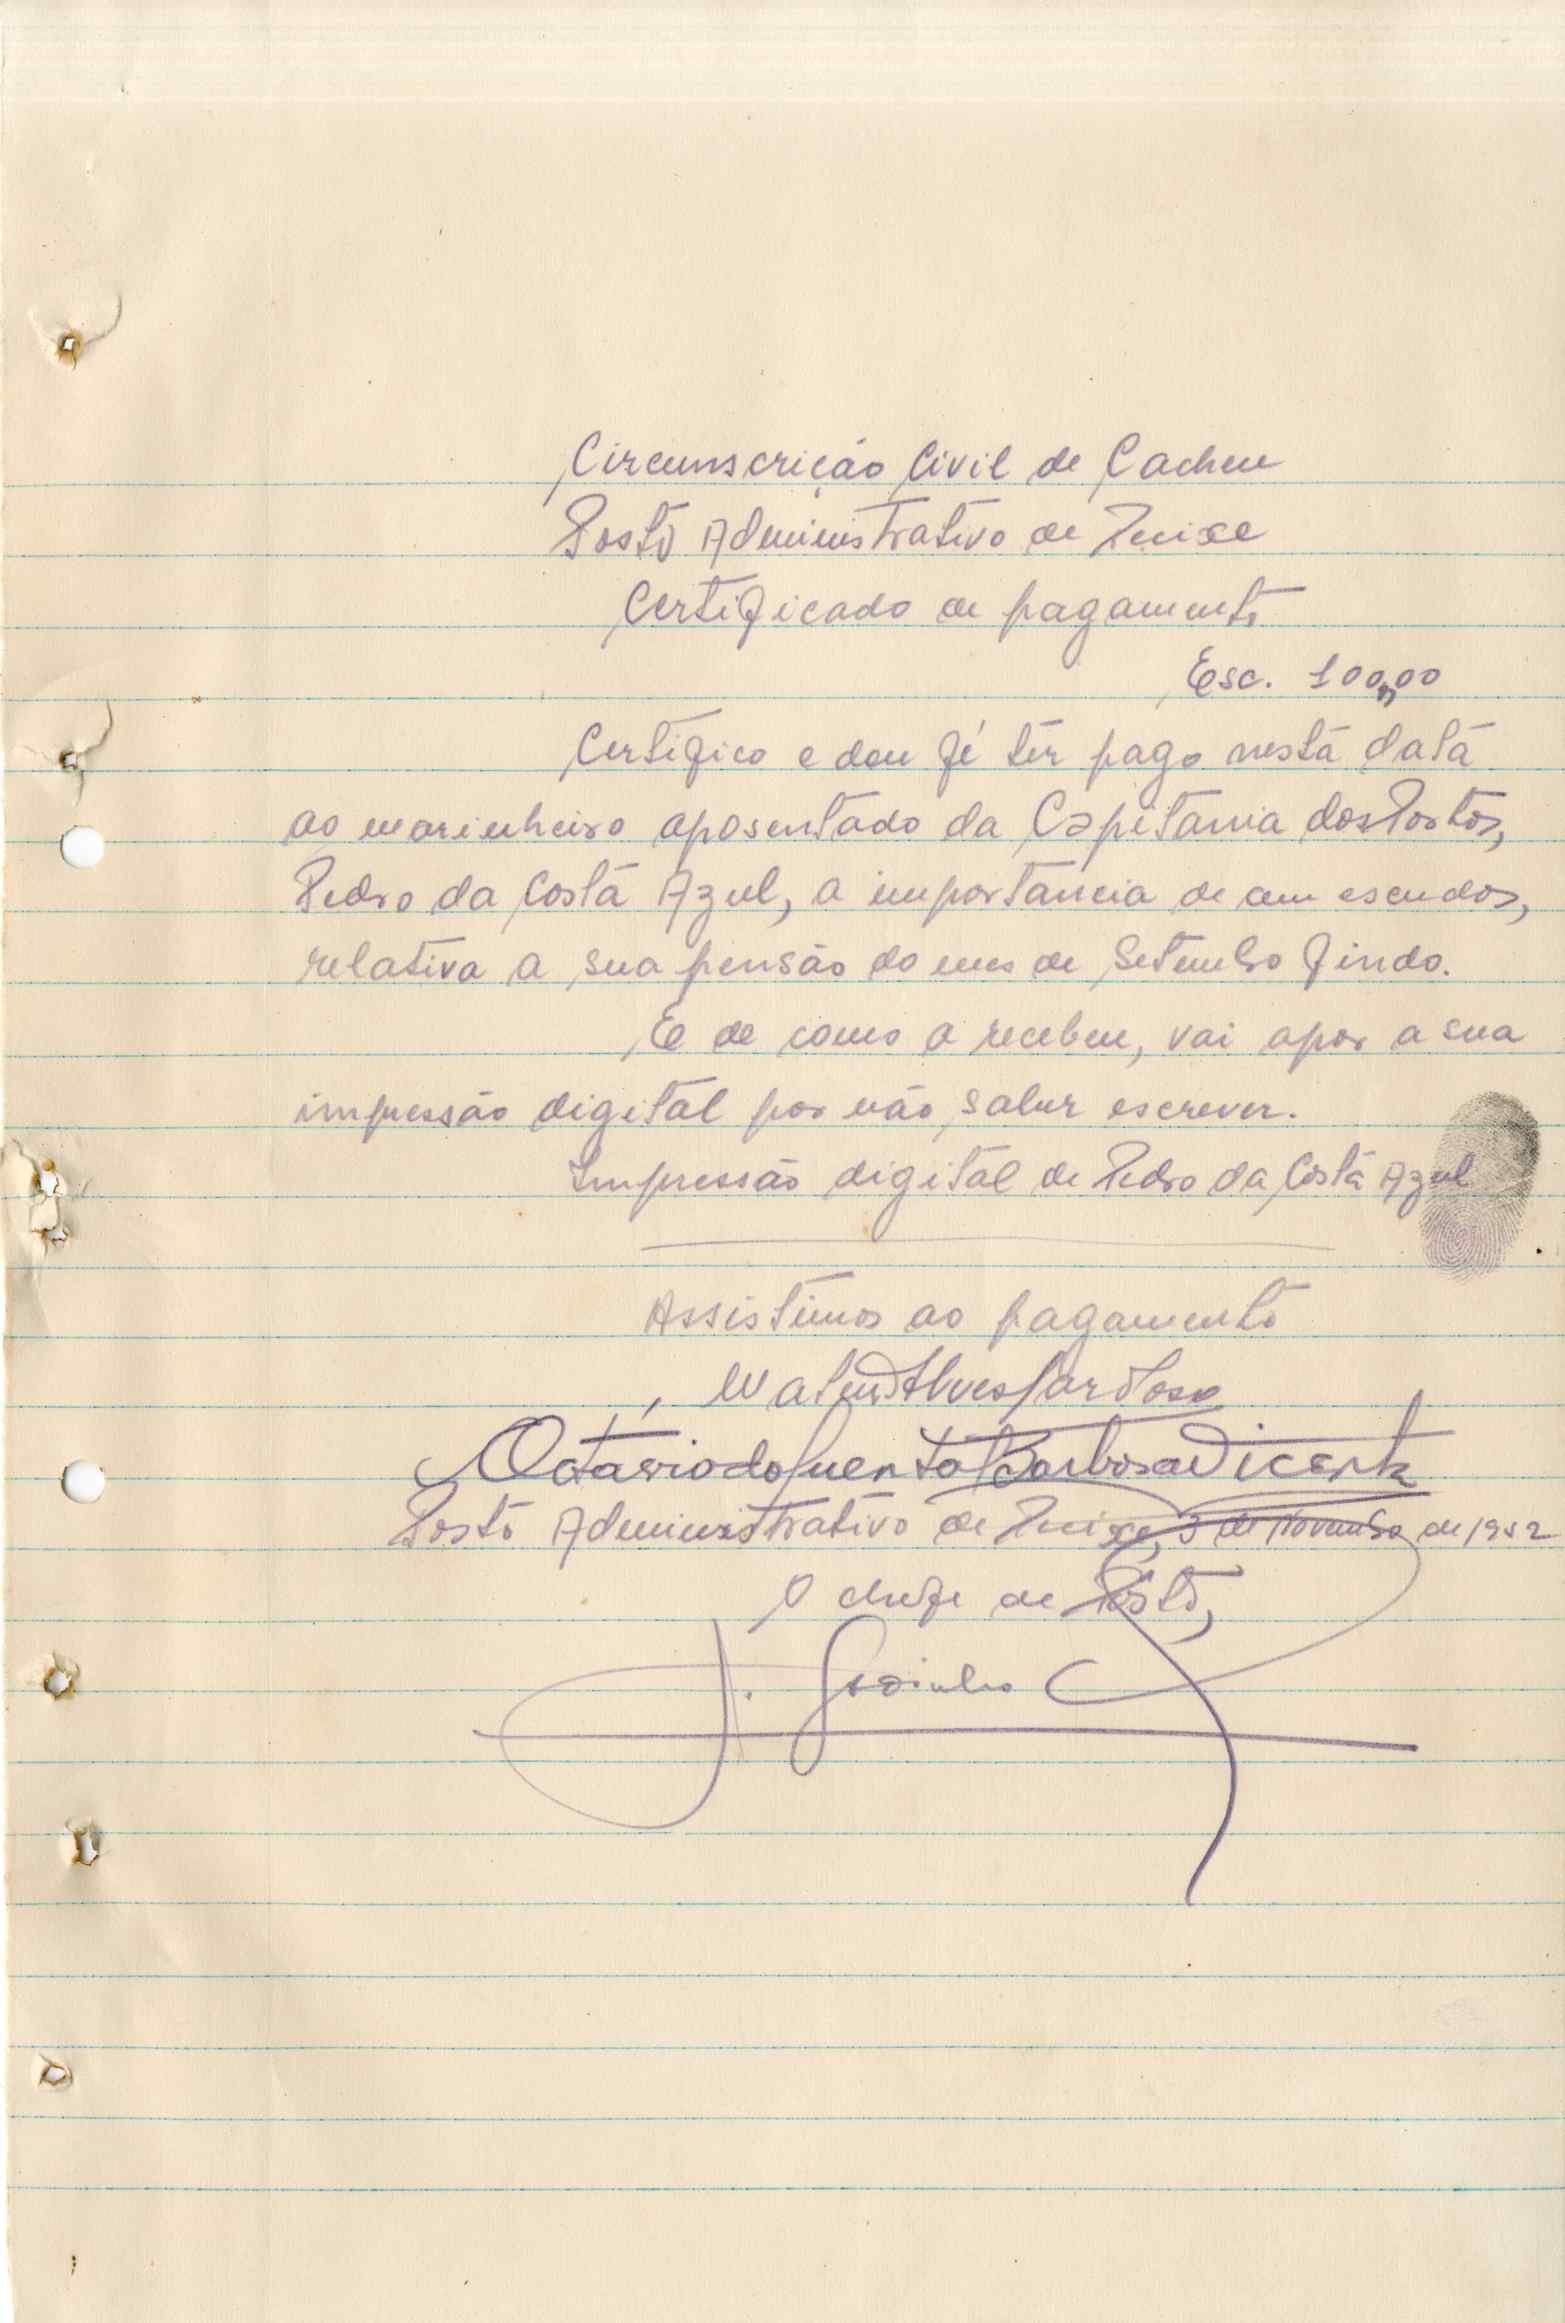 Circunscrição Civil de Cacheu
Posto Administrativo de
Certificado de pagamento
Esc. 100,00
Certifico e dou fé ter pago nesta data
ao marinheiro aposentado da Capitania dos Portos,
Pedro da Costa Azul, a importancia de cem escudos,
relativa a sua pensão do mes de Setembro findo.
E de como a recebeu, vai apor a sua
impressão digital por não saber escrever.
Impressão digital de Pedro da Costa Azul
Assistimos ao pagamento
Alves Cardoso
Octavio do Barbosa Vicente
Posto Administrativo de 3 de Novembro de 1952
O chefe de Posto,
J. Godinho